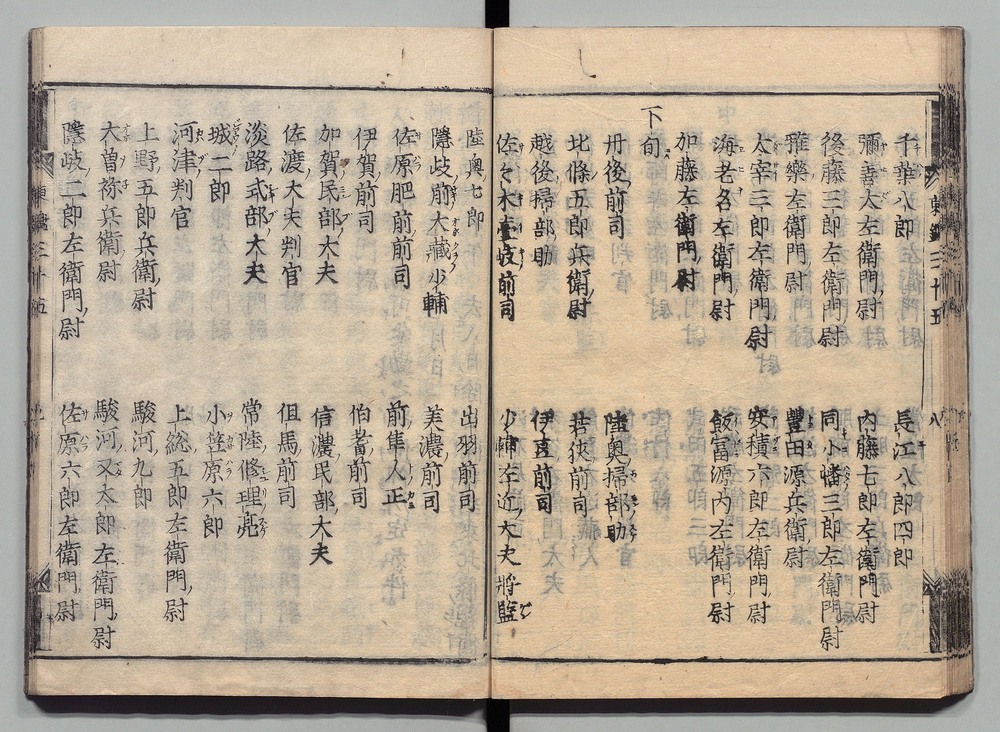 千葉八郎 長江八郎四郎
彌善太左衛門尉 内藤七郎左衛門尉
後藤三郎左衛門尉 同小幡三郎左衛門尉
雅樂左衛門尉 豐田源兵衛尉
太宰三郎左衛門尉 安積六郎左衛門尉
海老名左衛門尉 飯富源内左衛門尉
加藤左衛門尉
下旬
丹後前司 陸奥掃部助
北條五郎兵衛尉 若狹前司
越後掃部助 伊豆前司
佐々木壹岐前司 少輔左近大夫將監
陸奥七郎 出羽前司
隱岐前大藏少輔 美濃前司
佐原肥前前司 前隼人正
伊賀前司 伯耆前司
加賀民部大夫 信濃民部大夫
佐渡大夫判官 但馬前司
淡路式部大夫 常陸修理亮
城二郎 小笠原六郎
河津判官 上総五郎左衛門尉
上野五郎兵衛尉 駿河九郎
大曽祢兵衛尉 駿河又太郎左衛門尉
隱岐二郎左衛門尉 佐原六郎左衛門尉
東鑑三十五
八
東鑑三十五
九